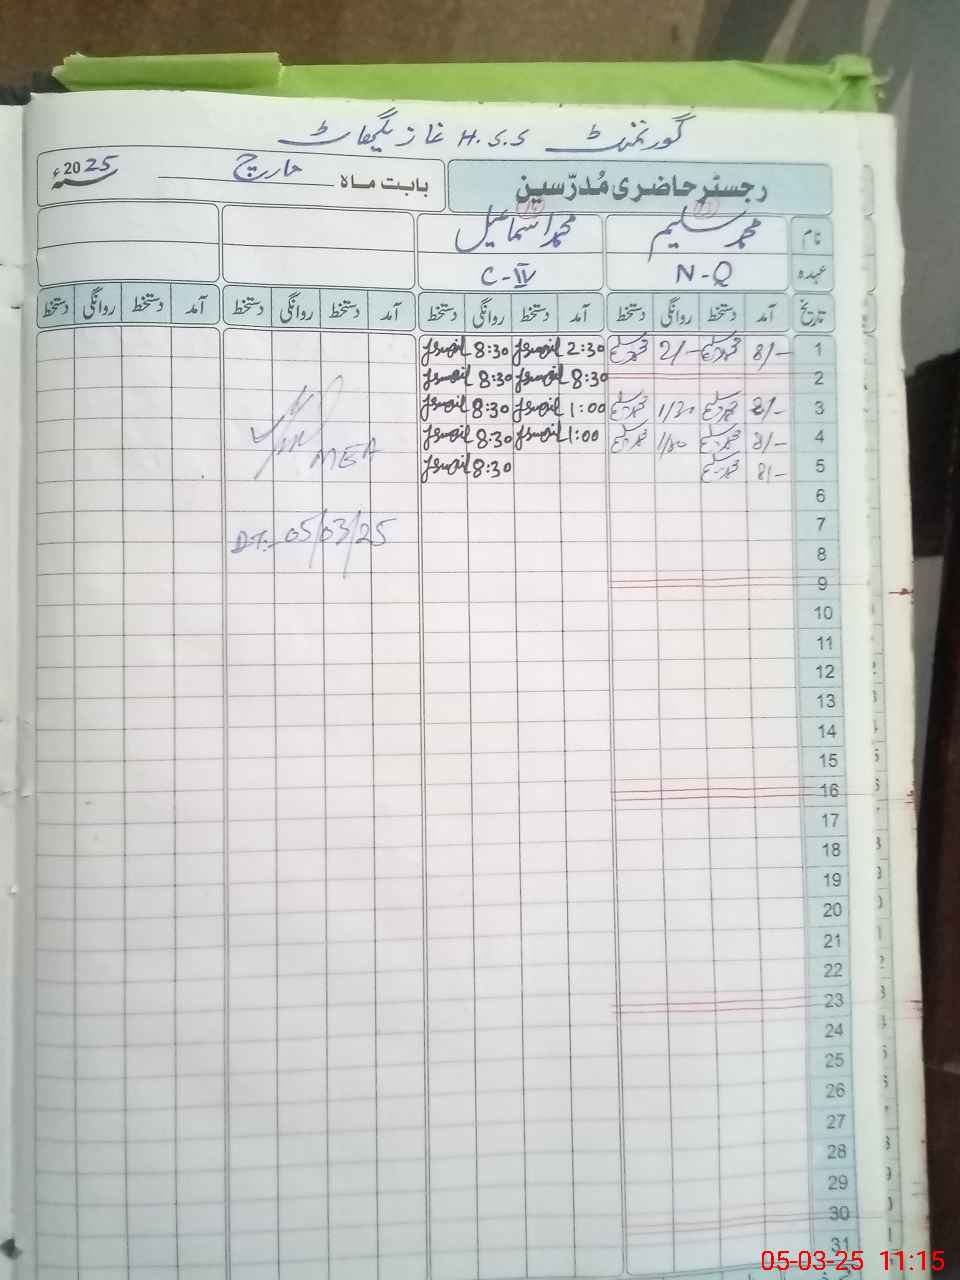 گورنمنٹ H.S.S غازیگھاٹ
رجسٹر حاضری مُدرّسین
بابت ماہ مارچ سنہ 2025ء
نام محمد سلیم محمد اسماعیل
عہدہ N-Q C-IV
تاریخ آمد دستخط روانگی دستخط آمد دستخط روانگی دستخط آمد دستخط روانگی دستخط آمد دستخط روانگی دستخط
1 8/- 2/- 2:30 Ismail 8:30 Ismail
2 8:30 Ismail 8:30 Ismail
3 8/- 1/30 1:00 Ismail 8:30 Ismail
4 8/- 1/30 1:00 Ismail 8:30 Ismail
5 8/- 8:30 Ismail
MEA
6
7
DT:- 05/03/25
8
9
10
11
12
13
14
15
16
17
18
19
20
21
22
23
24
25
26
27
28
29
30
31
05-03-25 11:15